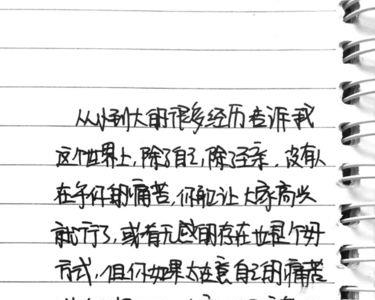 从小到大的很多经历告诉我
这个世界上,除了自己,除了至亲,没有人
在乎你的痛苦,你能让大家高兴
就行了,或者无感的存在也是个好
方式,但你如果太在意自己的痛苦